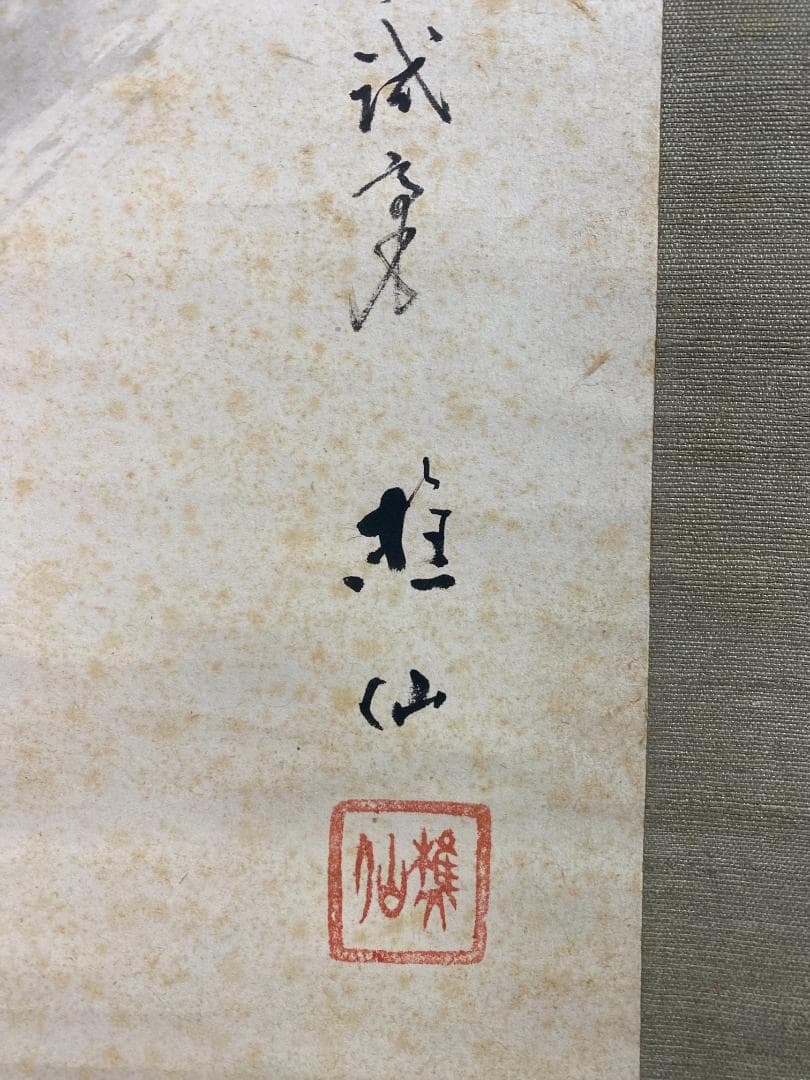 試毫 樵仙
樵仙